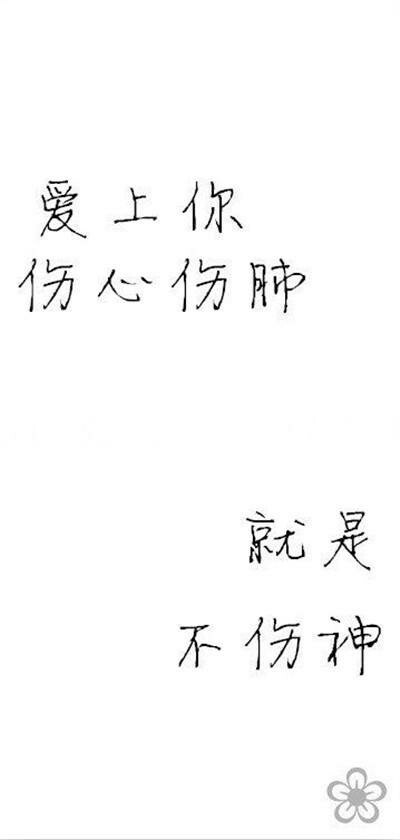 爱上你
伤心伤肺
就是
不伤神